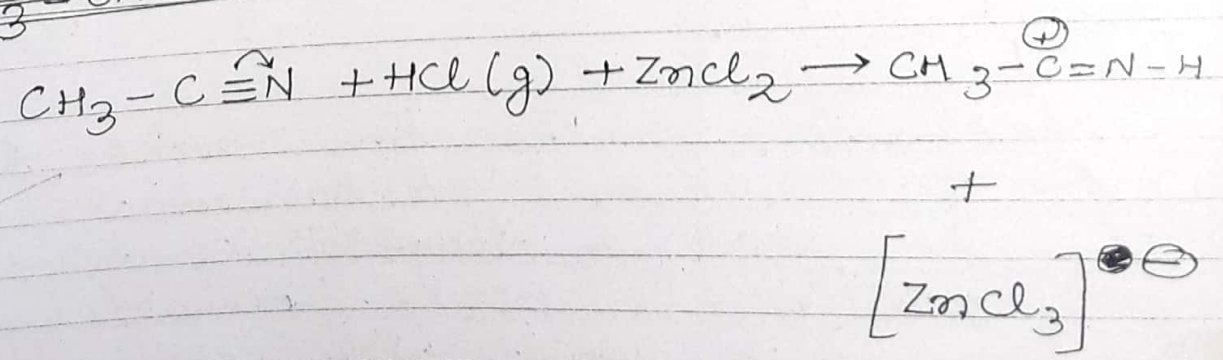 3
CH₃ - C ≡ N + HCl (g) + ZnCl₂ → CH₃ - C⊕ = N - H
+
[ZnCl₃]⊖